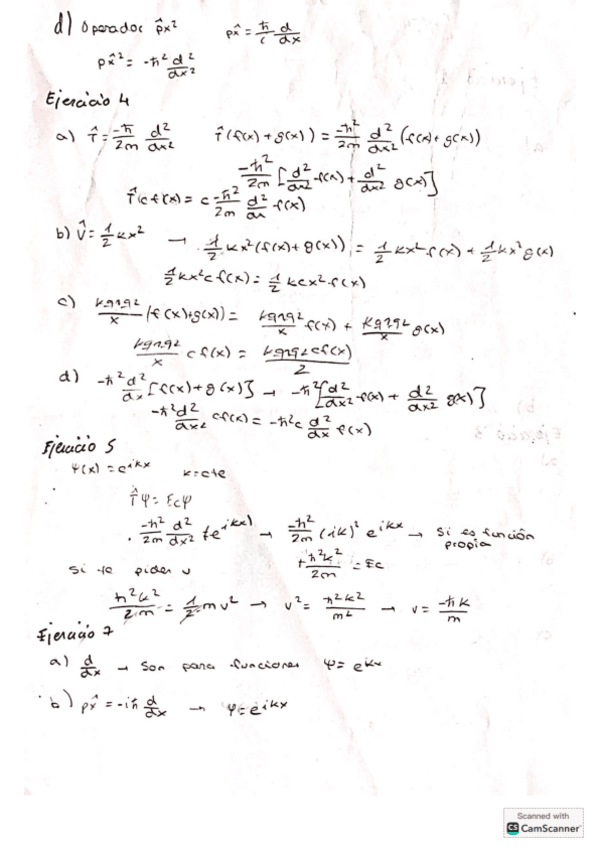 d) Operador p̂x² p̂x = ħ/i d/dx
p̂x² = -ħ² d²/dx²
Ejercicio 4
a) T̂ = -ħ/2m d²/dx² T̂(f(x)+g(x)) = -ħ²/2m d²/dx² (f(x)+g(x))
-ħ²/2m [d²/dx² f(x) + d²/dx² g(x)]
T̂ c f(x) = c -ħ²/2m d²/dx f(x)
b) V̂ = 1/2 kx² → 1/2 kx² (f(x)+g(x)) = 1/2 kx² f(x) + 1/2 kx² g(x)
1/2 kx² c f(x) = 1/2 kcx² f(x)
c) kq1q2/x (f(x)+g(x)) = kq1q2/x f(x) + kq1q2/x g(x)
kq1q2/x c f(x) = kq1q2 c f(x)/2
d) -ħ² d²/dx [f(x)+g(x)] → -ħ² [d²/dx² f(x) + d²/dx² g(x)]
-ħ² d²/dx² c f(x) = -ħ² c d²/dx f(x)
Ejercicio 5
Ψ(x) = e^ikx k = cte
T̂ Ψ = Ec Ψ
-ħ²/2m d²/dx² (e^ikx) → -ħ²/2m (ik)² e^ikx → Si es función propia
+ħ²k²/2m = Ec
Si te piden v
ħ²k²/2m = 1/2 mv² → v² = ħ²k²/m² → v = -ħk/m
Ejercicio 7
a) d/dx → Son para funciones Ψ = e^kx
b) p̂x = -iħ d/dx → Ψ = e^ikx
Scanned with
CS CamScanner